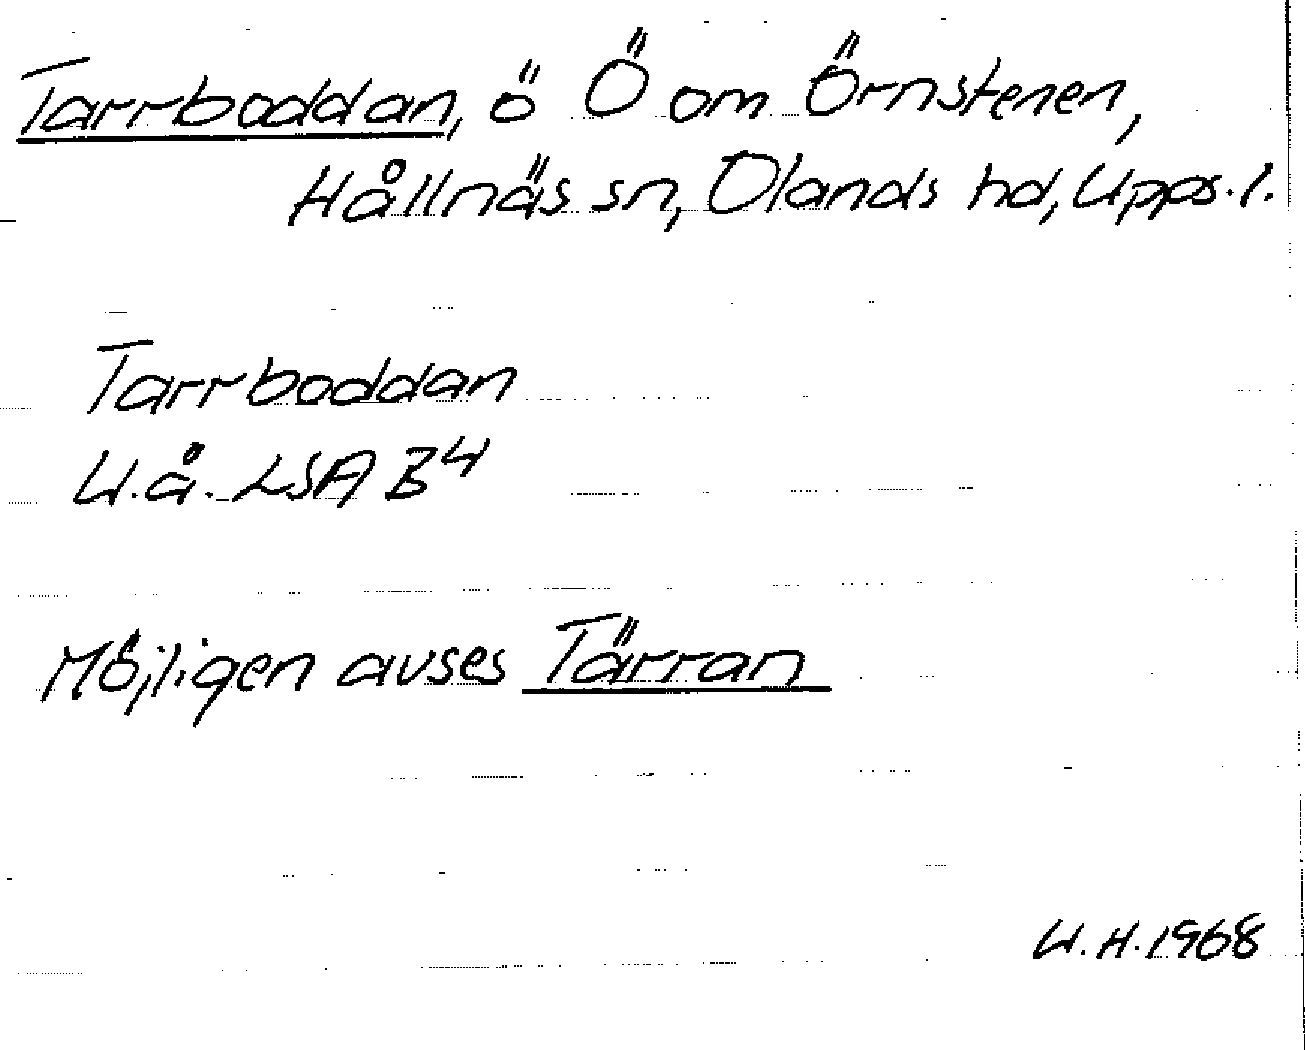 Tarrboddan, ö Ö om Örnstenen,
Hållnäs sn, Olands hd, Upps. l.
Tarrboddan
U.å. LSA B 4
Möjligen avses Tärran
U.H. 1968